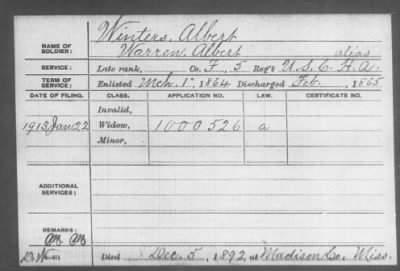 Winters, Albert
NAME OF SOLDIER: Warren, Albert alias
SERVICE: Late rank, Co. F, 5 Reg't U.S.C. H.A.
TERM OF SERVICE: Enlisted Mch. 1", 1864 Discharged Feb. , 1865
DATE OF FILING. CLASS. APPLICATION NO. LAW. CERTIFICATE NO.
Invalid,
1913 Jan 22 Widow, 1000526 a
Minor,
ADDITIONAL SERVICES:
REMARKS:
Died Dec. 5, 1892, at Madison Co. Miss.